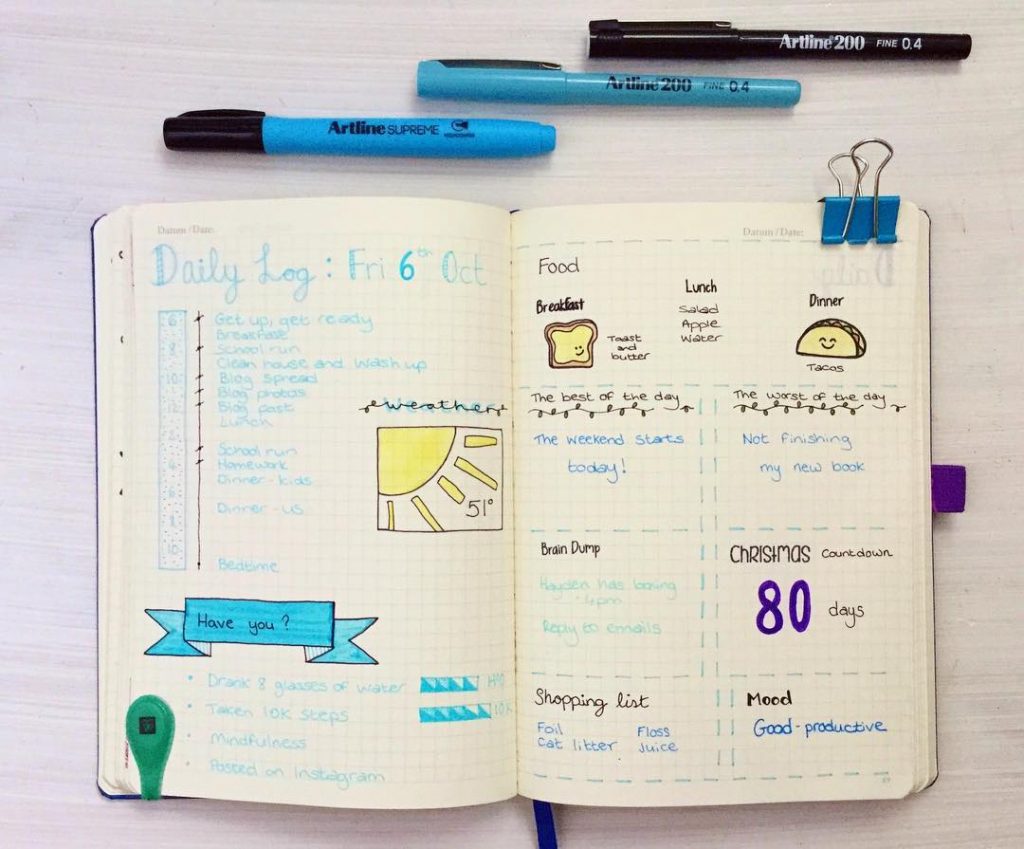 Artline 200 FINE 0.4
Artline 200 FINE 0.4
Artline SUPREME
Datum / Date:
Daily Log : Fri 6th Oct
6
Get up, get ready
Breakfast
8
School run
Clean house and wash up
10
Blog spread
Blog photos
12
Blog post
Lunch
2
School run
4
Homework
Dinner - kids
6
Dinner - us
8
10
Bedtime
weather
51°
Have you ?
• Drank 8 glasses of water
• Taken 10K steps
10K
• Mindfulness
• Posted on Instagram
Datum / Date:
Food
Breakfast
Toast
and
butter
Lunch
Salad
Apple
Water
Dinner
Tacos
The best of the day
The weekend starts
today!
The worst of the day
Not finishing
my new book
Brain Dump
Hayden has boxing
4pm
Reply to emails
CHRISTMAS Countdown
80 days
Shopping list
Foil
Cat litter
Floss
Juice
Mood
Good - productive